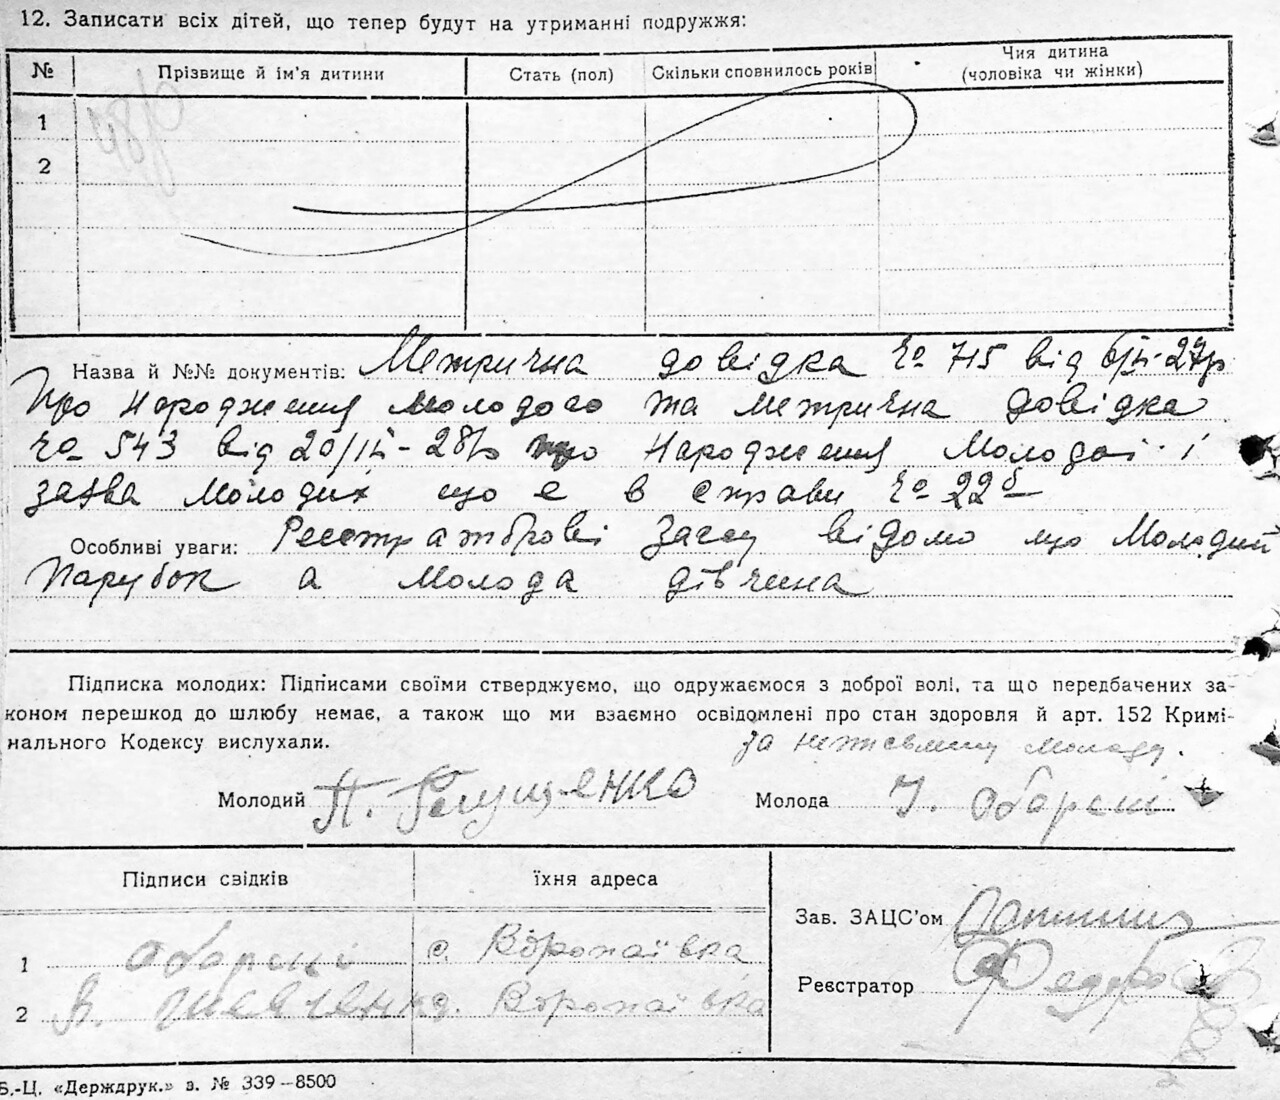 12. Записати всіх дітей, що тепер будут на утриманні подружжя:
№ Прізвище й ім'я дитини Стать (пол) Скільки сповнилось років Чия дитина (чоловіка чи жінки)
1
2
Назва й №№ документів: Метрична довідка № 715 від 27р
Про Народження Молодого та Метрична довідка
№ 543 від 20/ІХ-28р про Народження Молодої і
заява Молодих що є в справи № 22
Особливі уваги: Реєстраторові Загсу відомо що Молодий
Парубок а Молода дівчина
Підписка молодих: Підписами своїми стверджуємо, що одружаємося з доброї волі, та що передбачених за-
коном перешкод до шлюбу немає, а також що ми взаємно освідомлені про стан здоровля й арт. 152 Кримі-
нального Кодексу вислухали.
за неписьмену молоду.
Молодий П. Молода
Підписи свідків їхня адреса
Зав. ЗАЦС'ом
1 с. Воропаївка
Реєстратор
2 В. Шевченко с. Воропаївка
Б.-Ц. «Держдрук.» з. № 339—8500